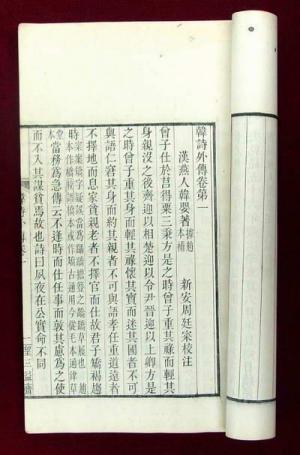 韓詩外傳卷第一
漢燕人韓嬰著
新安周廷寀校注
曾子仕於莒得粟三秉方是之時曾子重其祿而輕其
身親沒之後齊迎以相楚迎以令尹晉迎以上卿方是
之時曾子重其身而輕其祿懷其寶而迷其國者不可
與語仁窘其身而約其親者不可與語孝任重道遠者
不擇地而息家貧親老者不擇官而仕故君子橋褐趨
時
當務為急傳云不逢時而仕任事而敦其慮為之使
而不入其謀貧焉故也詩曰夙夜在公實命不同